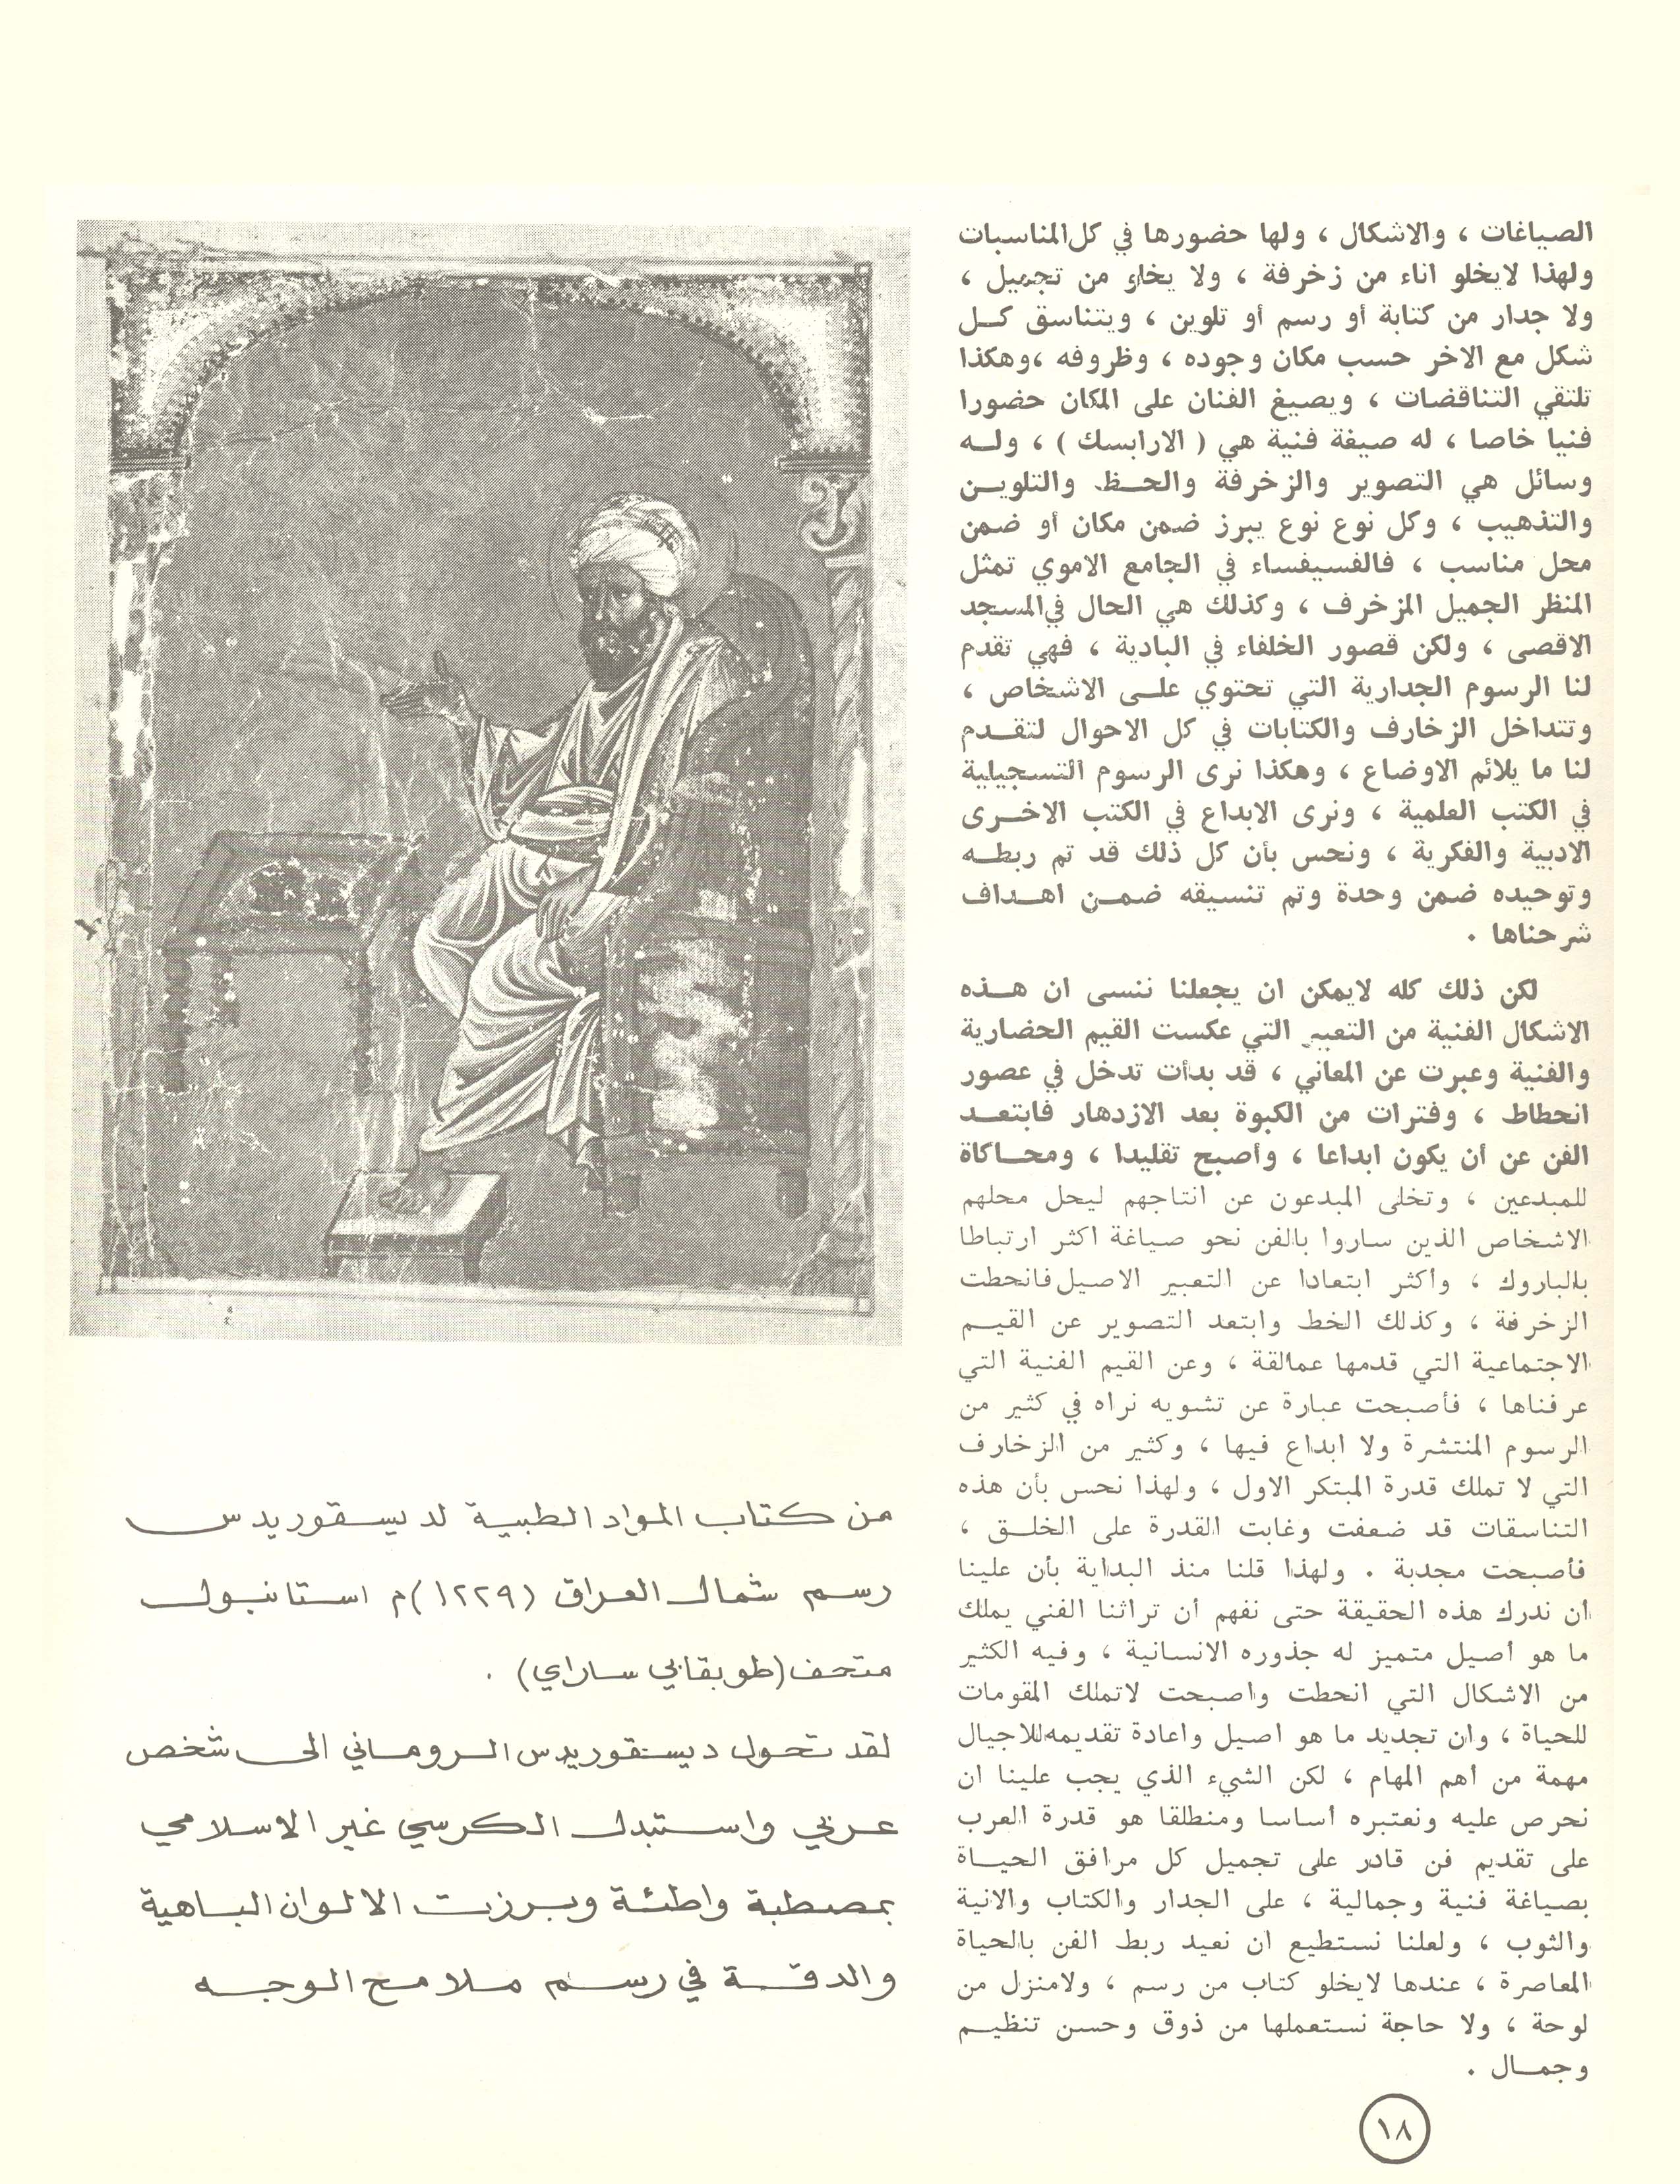 الصياغات ، والاشكال ، ولها حضورها في كل المناسبات
ولهذا لايخلو اناء من زخرفة ، ولا يخلو من تجميل ،
ولا جدار من كتابة أو رسم أو تلوين ، ويتناسق كــل
شكل مع الاخر حسب مكان وجوده ، وظروفه ،وهكذا
تلتقي التناقضات ، ويصيغ الفنان على المكان حضورا
فنيا خاصا ، له صيغة فنية هي ( الارابسك ) ، ولــه
وسائل هي التصوير والزخرفة والحــظ والتلويــن
والتذهيب ، وكل نوع نوع يبرز ضمن مكان أو ضمن
محل مناسب ، فالفسيفساء في الجامع الاموي تمثل
المنظر الجميل المزخرف ، وكذلك هي الحال في المسجد
الاقصى ، ولكن قصور الخلفاء في البادية ، فهي تقدم
لنا الرسوم الجدارية التي تحتوي علــى الاشخاص ،
وتتداخل الزخارف والكتابات في كل الاحوال لتقــدم
لنا ما يلائم الاوضاع ، وهكذا نرى الرسوم التسجيلية
في الكتب العلمية ، ونرى الابداع في الكتب الاخــرى
الادبية والفكرية ، ونحس بأن كل ذلك قد تم ربطــه
وتوحيده ضمن وحدة وتم تنسيقه ضمــن اهــداف
شرحناها .
لكن ذلك كله لايمكن ان يجعلنا ننسى ان هــذه
الاشكال الفنية من التعبير التي عكست القيم الحضارية
والفنية وعبرت عن المعاني ، قد بدأت تدخل في عصور
انحطاط ، وفترات من الكبوة بعد الازدهار فابتعــد
الفن عن أن يكون ابداعا ، وأصبح تقليدا ، ومحــاكاة
للمبدعين ، وتخلى المبدعون عن انتاجهم ليحل محلهم
الاشخاص الذين ساروا بالفن نحو صياغة اكثر ارتباطا
بالباروك ، وأكثر ابتعادا عن التعبير الاصيل فانحطت
الزخرفة ، وكذلك الخط وابتعد التصوير عن القيــم
الاجتماعية التي قدمها عمالقة ، وعن القيم الفنية التي
عرفناها ، فأصبحت عبارة عن تشويه نراه في كثير من
الرسوم المنتشرة ولا ابداع فيها ، وكثير من الزخارف
التي لا تملك قدرة المبتكر الاول ، ولهذا نحس بأن هذه
التناسقات قد ضعفت وغابت القدرة على الخلــق ،
فأصبحت مجدبة . ولهذا قلنا منذ البداية بأن علينا
ان ندرك هذه الحقيقة حتى نفهم أن تراثنا الفني يملك
ما هو أصيل متميز له جذوره الانسانية ، وفيه الكثير
من الاشكال التي انحطت واصبحت لاتملك المقومات
للحياة ، وان تجديد ما هو اصيل واعادة تقديمه للاجيال
مهمة من أهم المهام ، لكن الشيء الذي يجب علينا ان
نحرص عليه ونعتبره أساسا ومنطلقا هو قدرة العرب
على تقديم فن قادر على تجميل كل مرافق الحيــاة
بصياغة فنية وجمالية ، على الجدار والكتاب والانية
والثوب ، ولعلنا نستطيع ان نعيد ربط الفن بالحياة
المعاصرة ، عندها لايخلو كتاب من رسم ، ولامنزل من
لوحة ، ولا حاجة نستعملها من ذوق وحسن تنظيــم
وجمــال .
من كتاب المواد الطبية لديسقوريدس
رسم شمال العراق (١٢٢٩)م استانبول
متحف (طوبقابي ساراي) .
لقد تحول ديسقوريدس الروماني الى شخص
عربي واستبدل الكرسي غير الاسلامي
بمصطبة واطئة وبرزت الالوان الباهية
والدقة في رسم ملامح الوجه
١٨